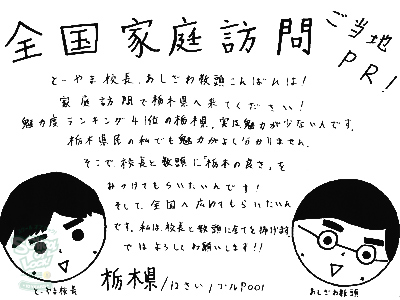 全国家庭訪問
ご当地
PR!
とーやま校長、あしざわ教頭こんばんは!
家庭訪問で栃木県へ来てください!
魅力度ランキング41位の栃木県。実は魅力が少ないんです。
栃木県民の私でも魅力がよく分かりません。
そこで校長と教頭に「栃木の良さ」を
みつけてもらいたいんです!
そして、全国へ広めてもらいたいん
です。私は、校長と教頭に全てを捧げます。
ではよろしくお願いします!!
とーやま校長
栃木県/はさい/プールPOOl
あしざわ教頭